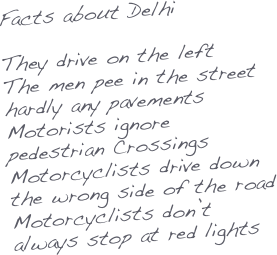 Facts about Delhi
They drive on the left
The men pee in the street
hardly any pavements
Motorists ignore
pedestrian Crossings
Motorcyclists drive down
the wrong side of the road
Motorcyclists don't
always stop at red lights